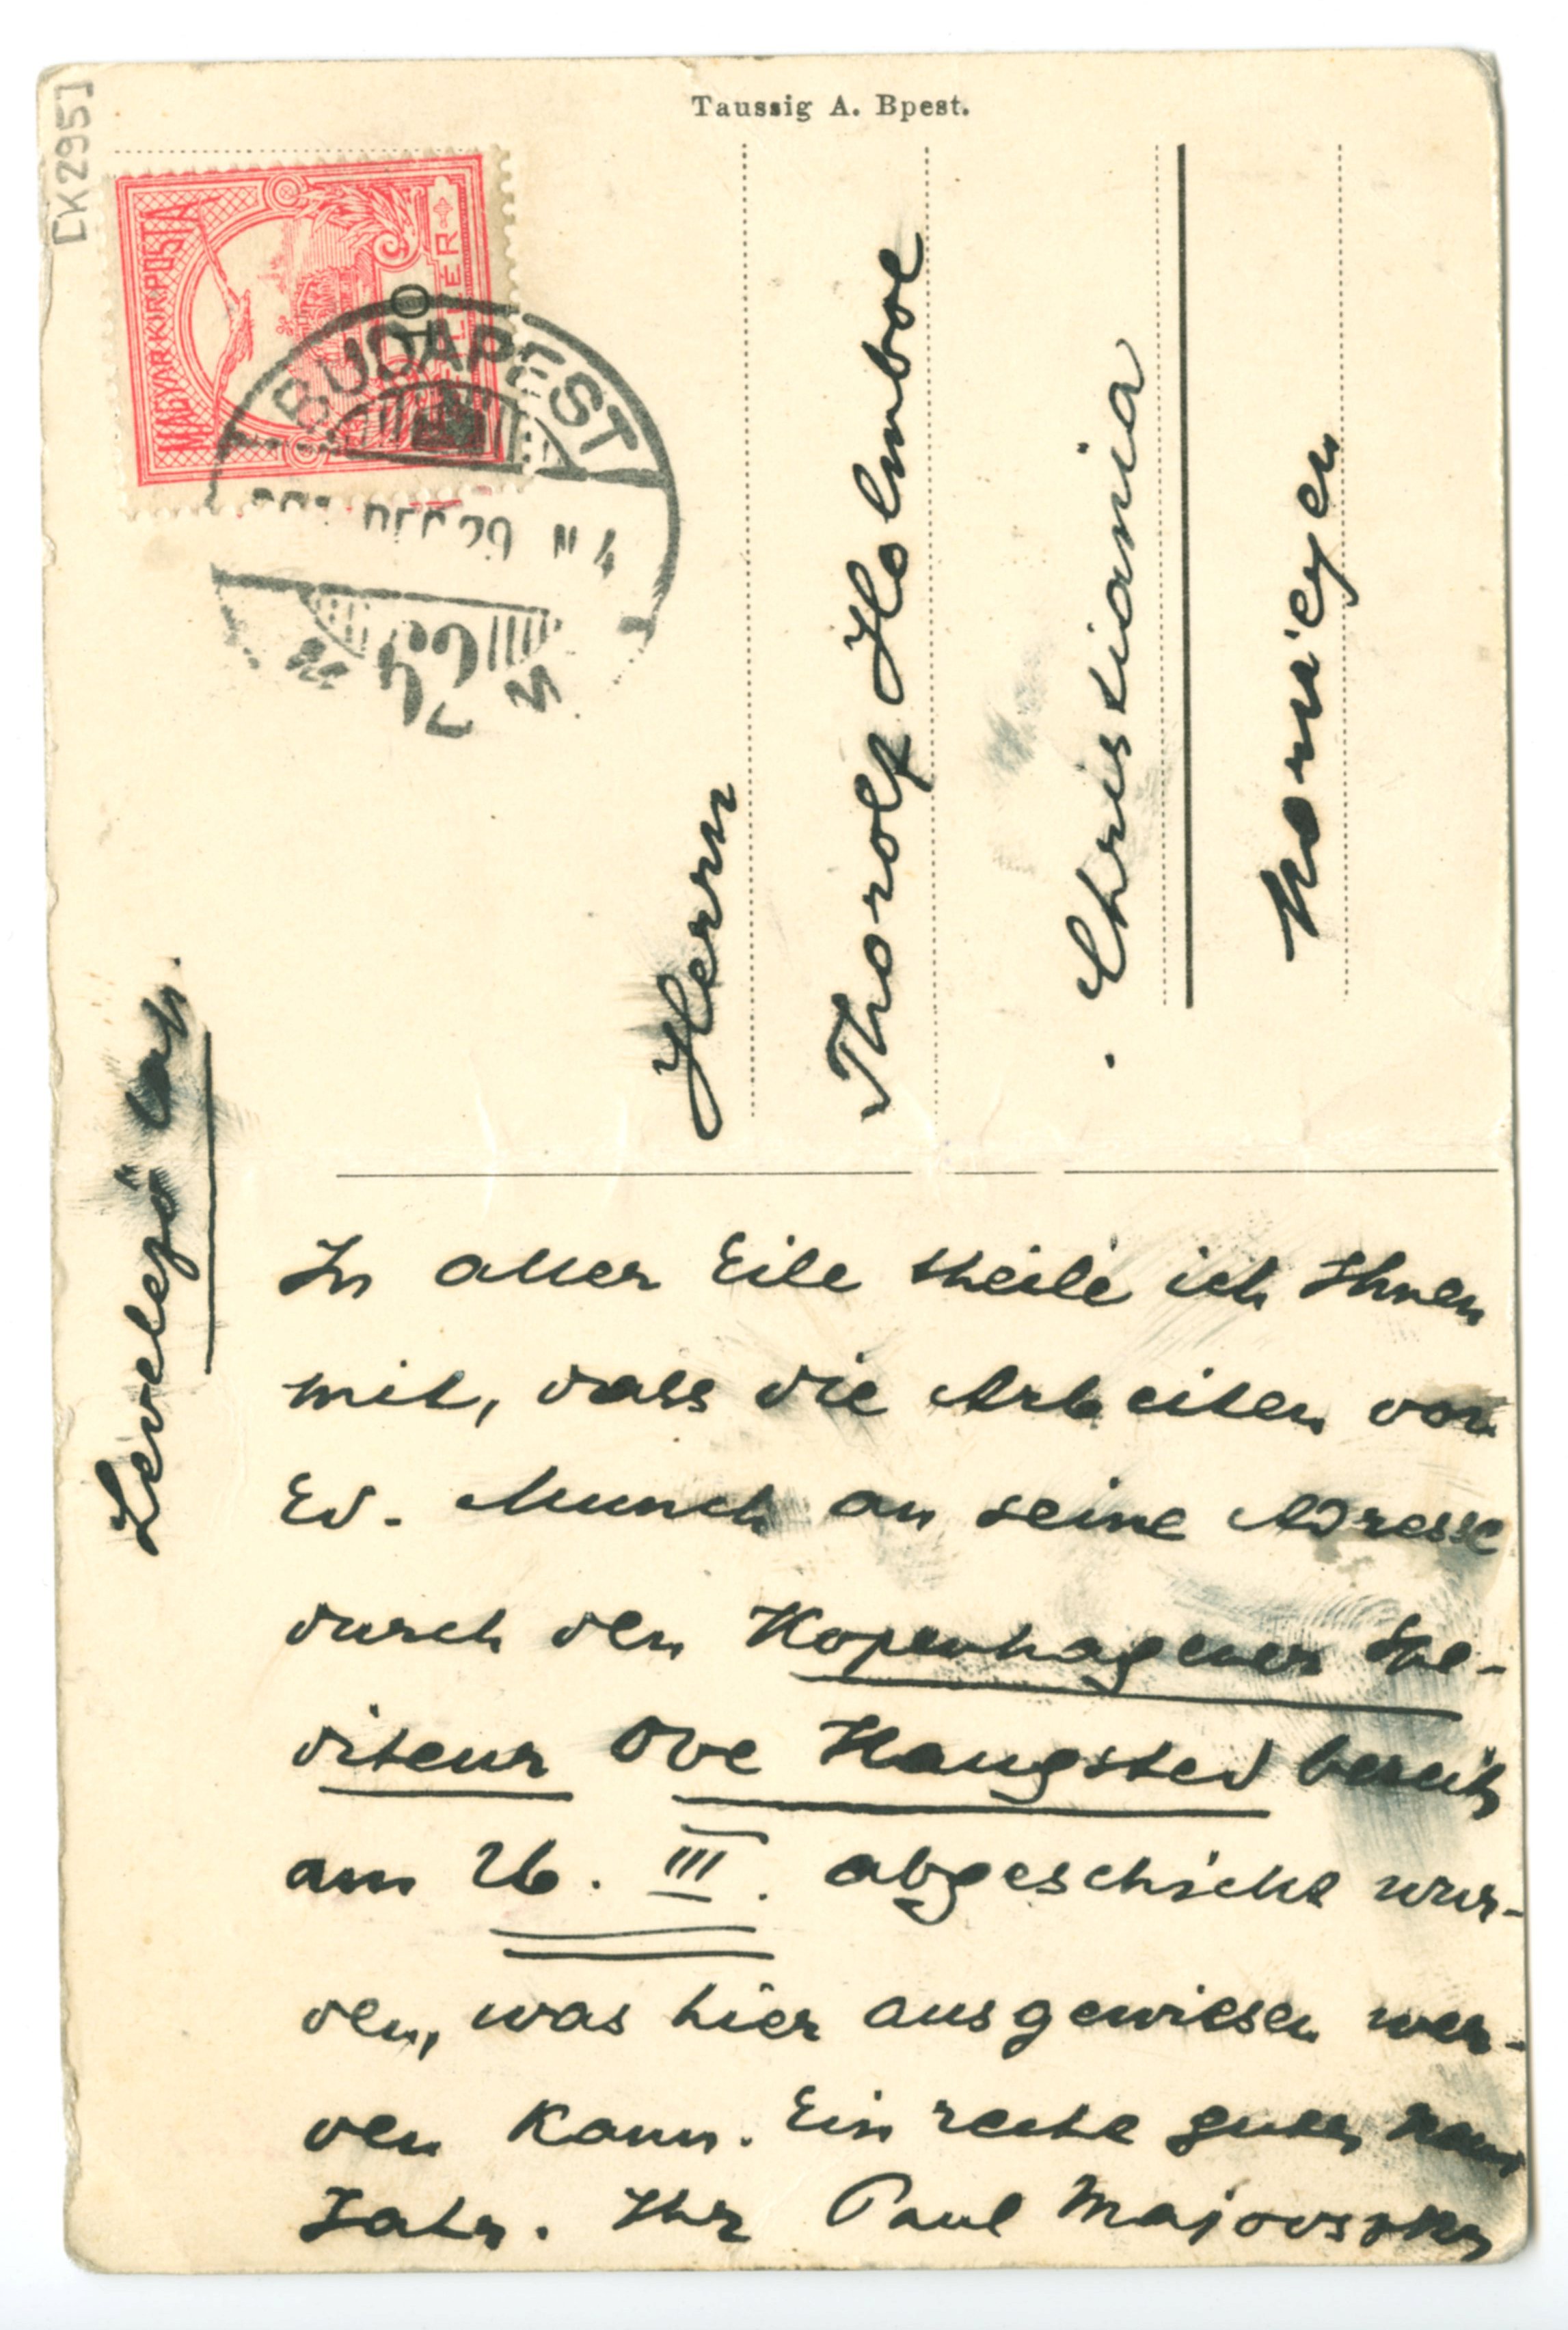 [K295]
Taussig A. Bpest.
MAGYAR KIR. POSTA
10
FILLÉR
BUDAPEST
Herrn
Thorolf Holmboe
Christiania
Norwegen
Levelező lap.
In aller Eile theile ich Ihnen
mit, dass die Arbeiten von
Ed. Munch an seine Adresse
durch den Kopenhagener Spe-
diteur Ove Haugsted bereits
am 26. III. abgeschickt wur-
den, was hier ausgewiesen wer-
den kann. Ein recht gutes neues
Jahr. Ihr Paul Majovszky